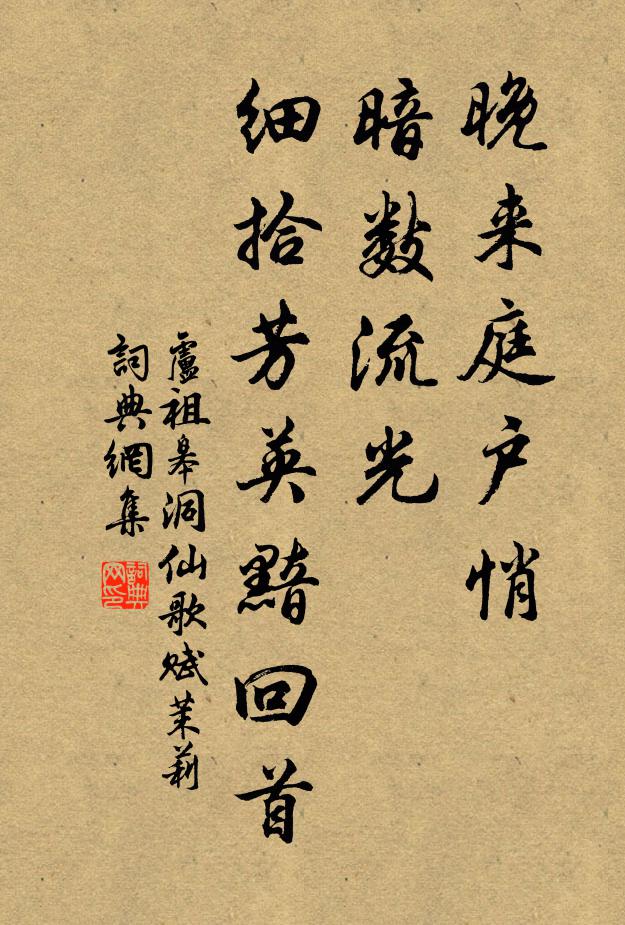 晚来庭户悄
暗数流光
细拾芳英黯回首
盧祖皋洞仙歌赋茉莉
詞典網集
詞典网印